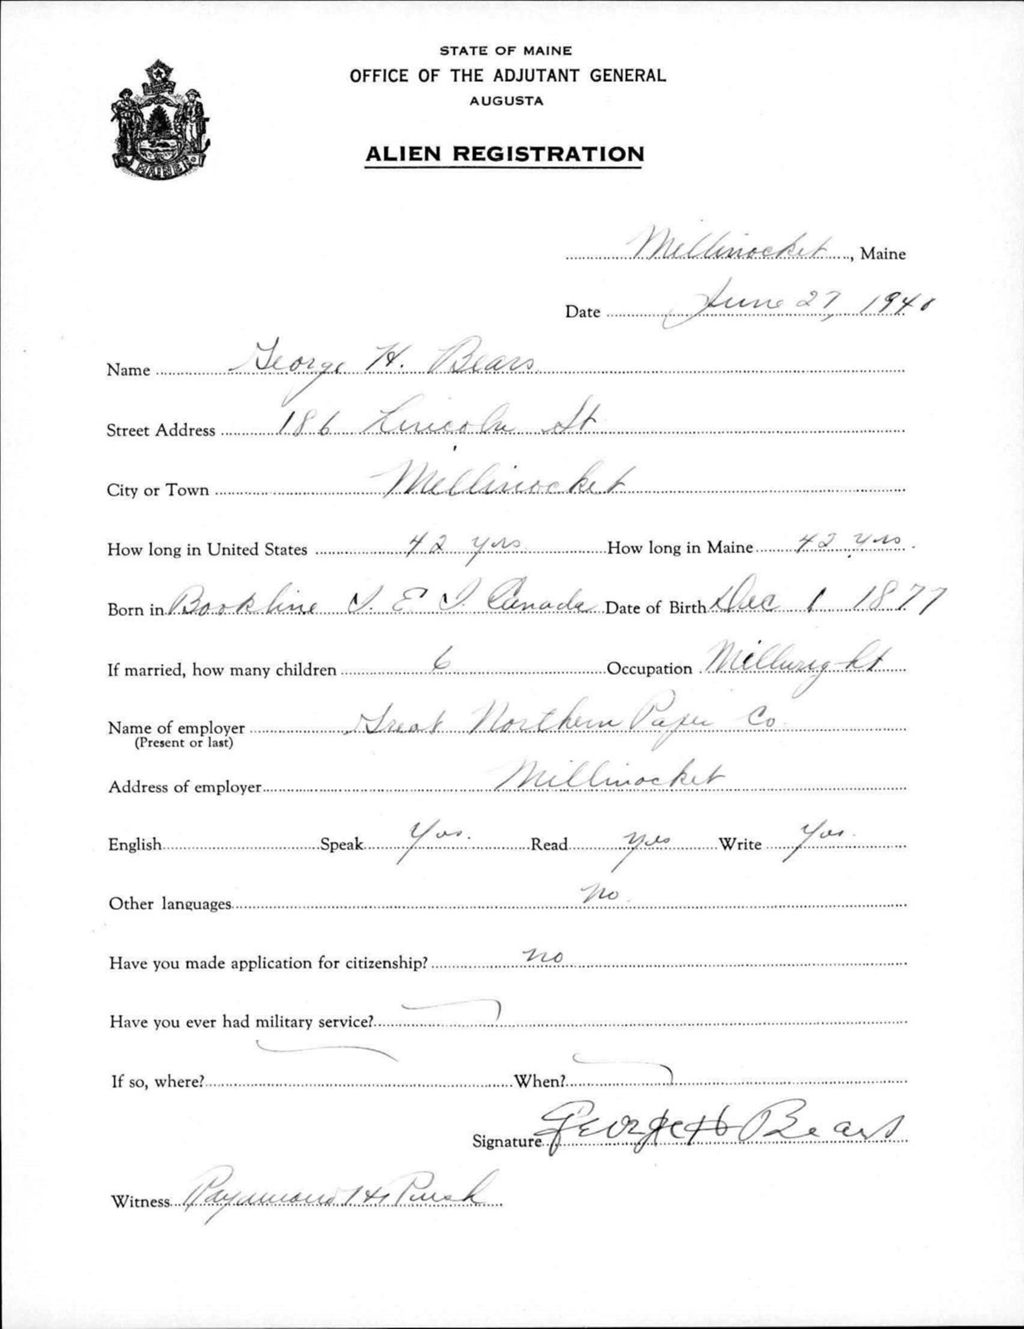 STATE OF MAINE
OFFICE OF THE ADJUTANT GENERAL
AUGUSTA
ALIEN REGISTRATION
MAINE
Millinocket, Maine
Date June 27, 1940
Name George H. Bears
Street Address 186 Lincoln St
City or Town Millinocket
How long in United States 42 yrs How long in Maine 42 yrs
Born in Bookline P. E. I. Canada Date of Birth Dec 1 1877
If married, how many children 6 Occupation Millwright
Name of employer Great Northern Paper Co
(Present or last)
Address of employer Millinocket
English Speak Yes. Read yes Write Yes
Other languages no
Have you made application for citizenship? no
Have you ever had military service?
If so, where? When?
Signature George H Bears
Witness Raymond H